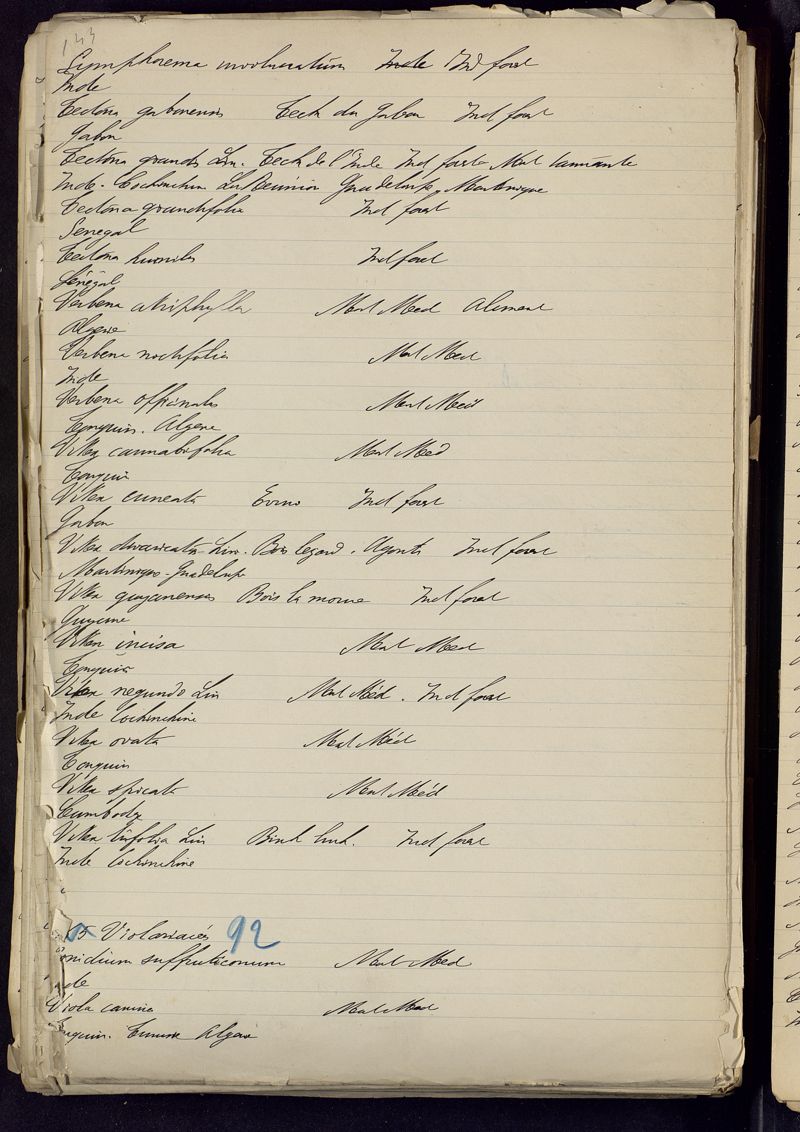 143
Symphorema involucratum Inde Ind forest
Inde
Tectona gabonensis Teck du Gabon Ind forest
Gabon
Tectona grandis Lin. Teck de l'Inde Ind forest Mat tannante
Inde. Cochinchin La Réunion Guadeloupe, Martinique
Tectona grandifolia Ind forest
Senegal
Tectona humilis Ind forest
Sénégal
Verbena Mat Med Aliment
Algerie
Verbena Mat Med
Inde
Verbena officinalis Mat Med
Tonquin. Algerie
Vitex cannabifolia Mat Méd
Tonquin
Vitex cuneata Evino Ind forest
Gabon
Vitex divaricata Lin. Bois lezard. Agouti Ind forest
Martinique - Guadelupe
Vitex guyanensis Bois la morue Ind forest
Guyane
Vitex incisa Mat Med
Tonquin
Vitex negundo Lin Mat Méd. Ind forest
Inde Cochinchine
Vitex ovata Mat Méd
Tonquin
Vitex spicata Mat Méd
Cambodge
Vitex trifolia Lin Ind forest
Inde Cochinchine
Violariacés 92
onidium suffruticosum Mat Med
nde
Viola canina Mat Med
onquin. Algerie